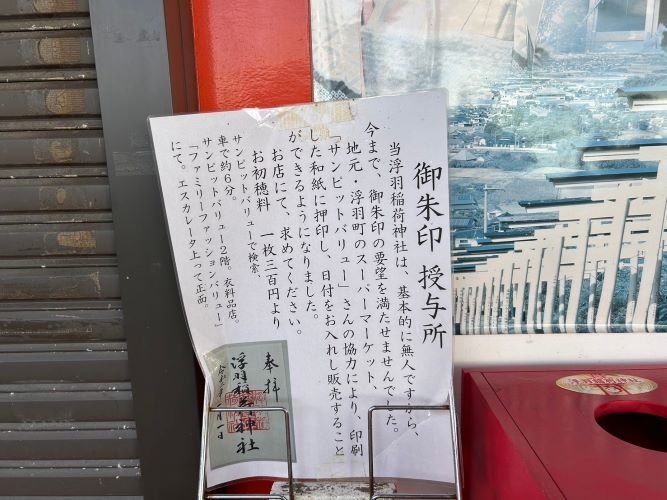 御朱印 授与所
当浮羽稲荷神社は、基本的に無人ですから、
今まで、御朱印の要望を満たせませんでした。
地元・浮羽町のスーパーマーケット、
「サンピットバリュー」さんの協力により、印刷
した和紙に押印し、日付をお入れし販売すること
ができるようになりました。
お店にて、求めてください。
お初穂料 一枚三百円より
サンピットバリューで検索、
車で約6分。
サンピットバリュー2階。衣料品店、
「ファミリーファッションバリュー」
にて。エスカレータ上って正面。
奉拝
浮羽稲荷神社
月一日